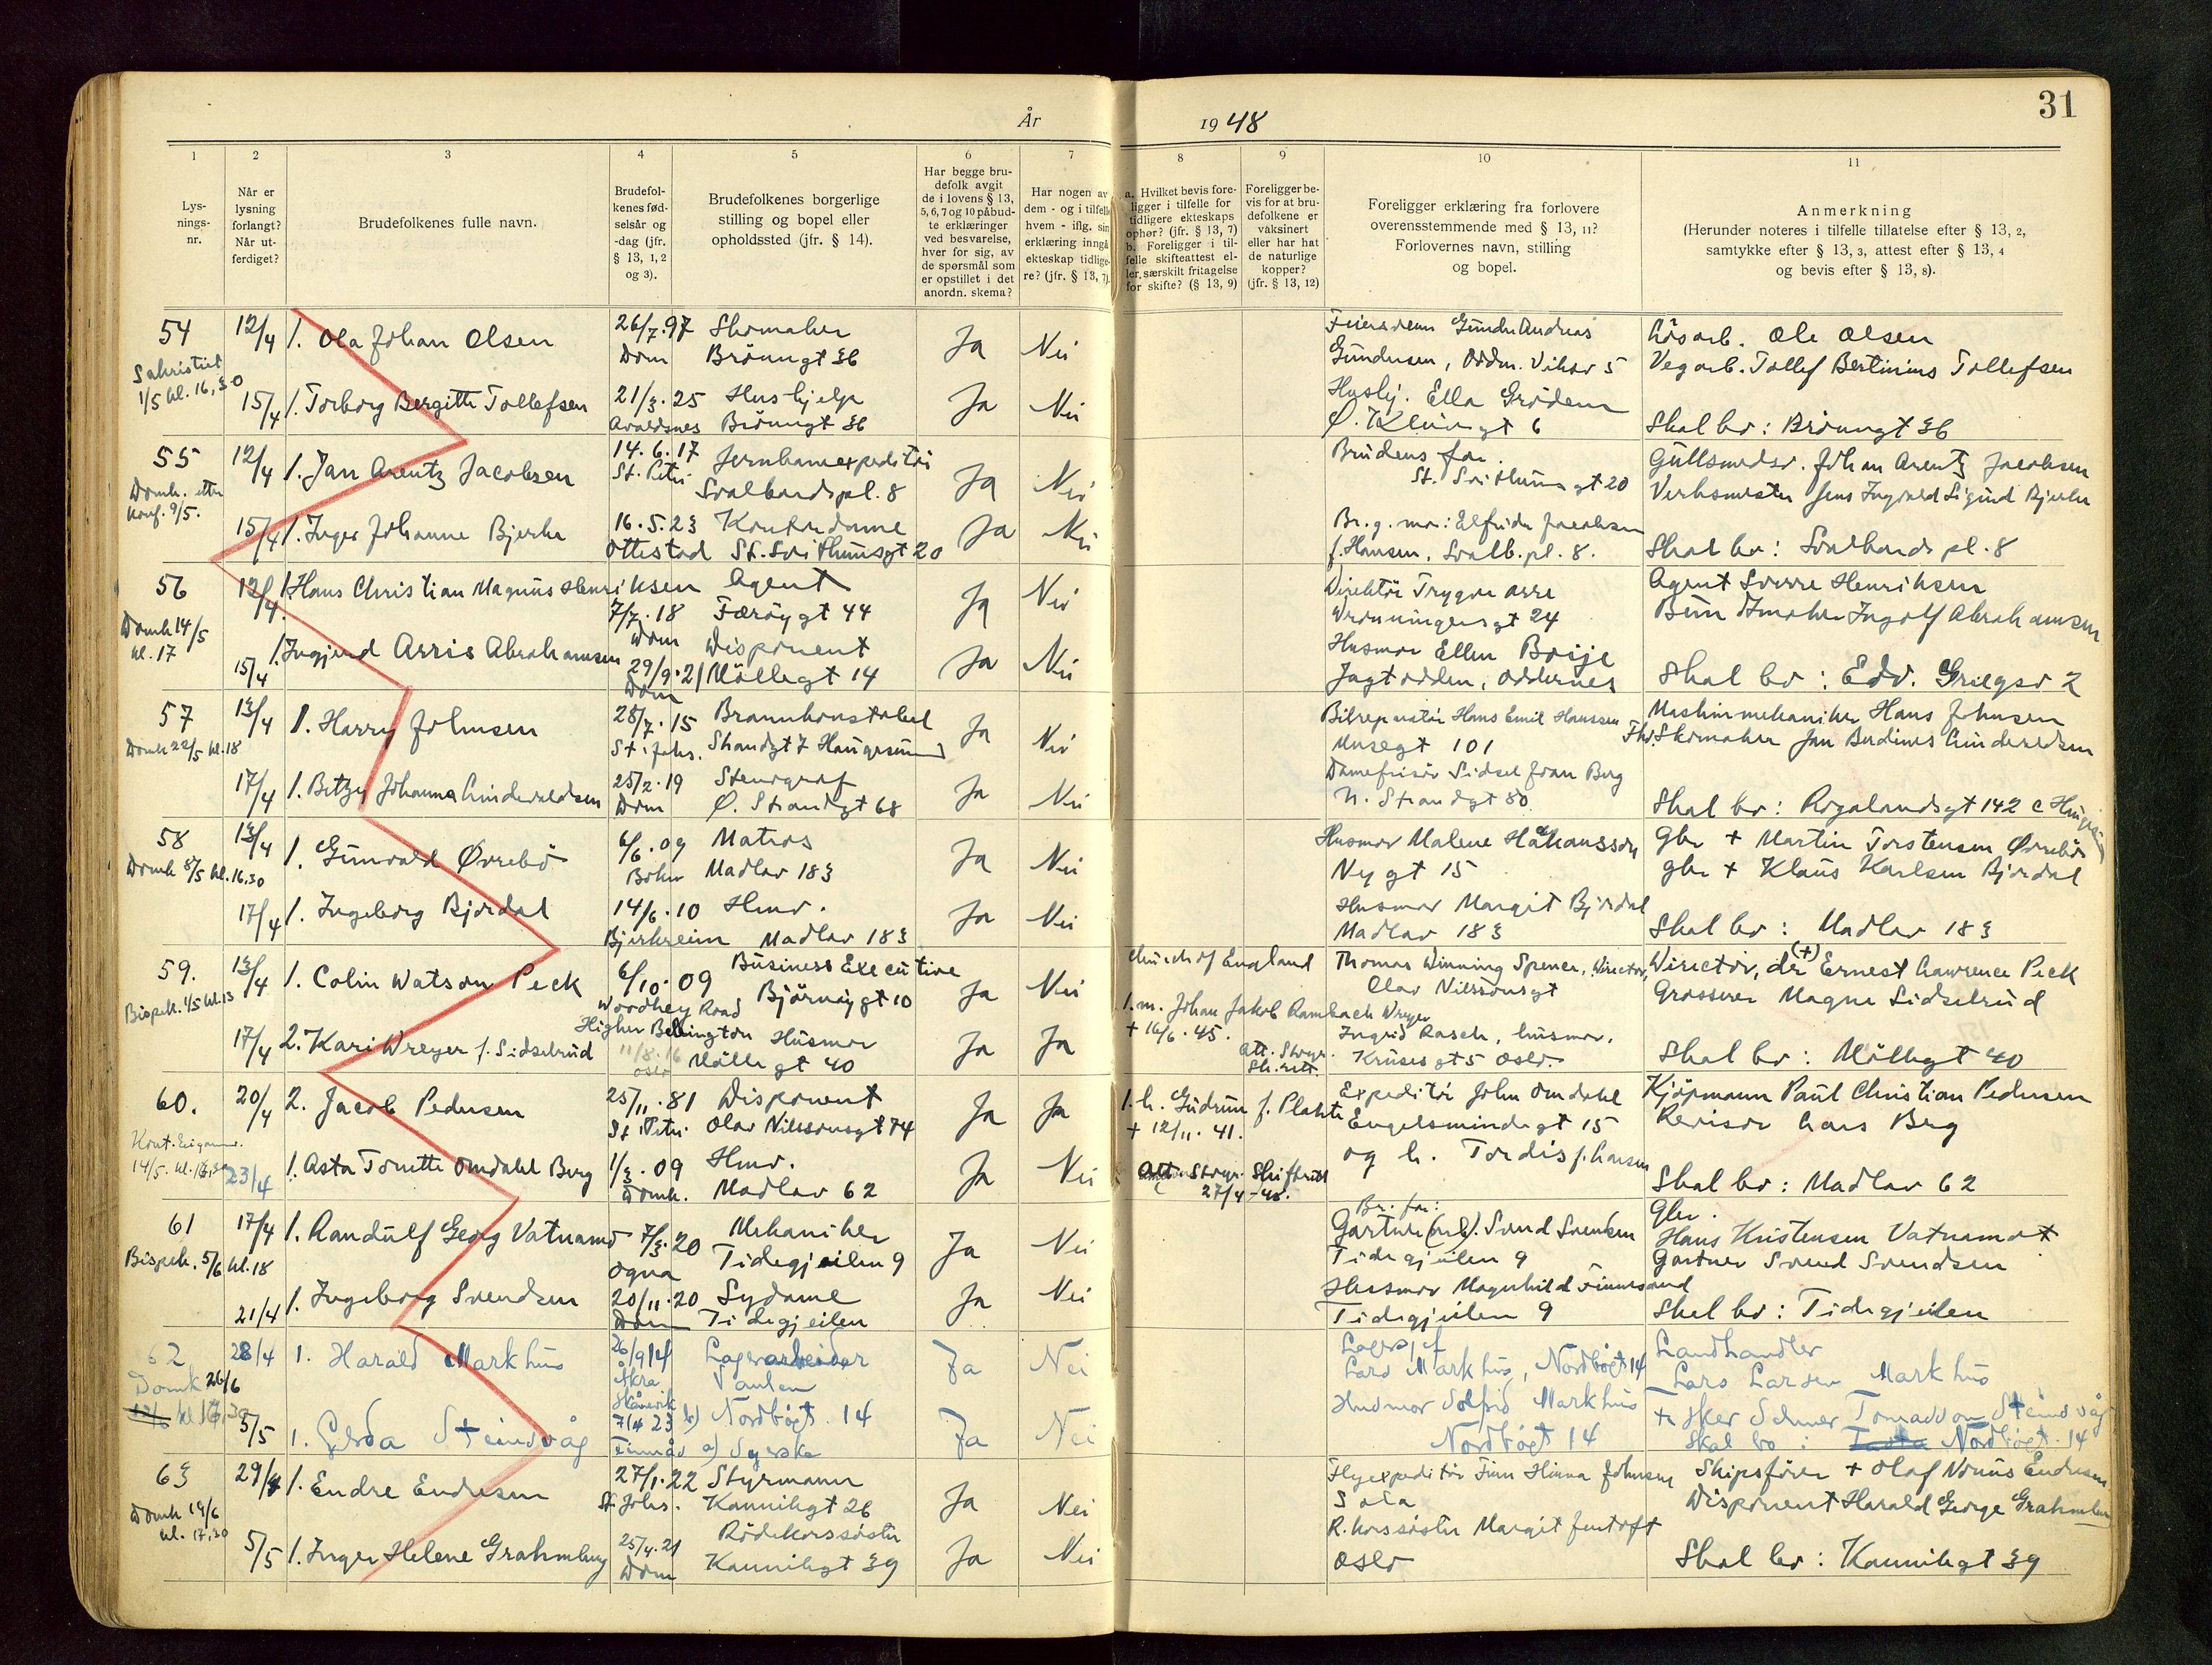 År 1948
31
1 2 3 4 5 6 7 8 9 10 11
Lys-
nings-
nr.
Når er
lysning
forlangt?
Når ut-
ferdiget?
Brudefolkenes fulle navn.
Brudefol-
kenes fød-
selsår og
-dag (jfr.
§ 13, 1, 2
og 3).
Brudefolkenes borgerlige
stilling og bopel eller
opholdssted (jfr. § 14).
Har begge bru-
defolk avgit
de i lovens § 13,
5, 6, 7 og 10 påbud-
te erklæringer
ved besvarelse,
hver for sig, av
de spørsmål som
er opstillet i det
anordn. skema?
Har nogen av
dem - og i tilfelle
hvem - iflg. sin
erklæring inngå
ekteskap tidlige-
re? (jfr. § 13, 7).
a. Hvilket bevis fore-
ligger i tilfelle for
tidligere ekteskaps
ophør? (jfr. § 13, 7)
b. Foreligger i til-
felle skifteattest el-
ler, særskilt fritagelse
for skifte? (§ 13, 9)
Foreligger be-
vis for at bru-
defolkene er
vaksinert
eller har hat
de naturlige
kopper?
(jfr. § 13, 12)
Foreligger erklæring fra forlovere
overensstemmende med § 13, 11?
Forlovernes navn, stilling
og bopel.
Anmerkning
(Herunder noteres i tilfelle tillatelse efter § 13, 2,
samtykke efter § 13, 3, attest efter § 13, 4
og bevis efter § 13, 8).
54 12/4 1. Ola Johan Olsen 26/7.97 Skomaker Ja Nei
Dom Brönngt 36
Sakristiet
1/5 kl. 16,30
15/4 1. Torborg Bergitte Tollefsen 21/3.25 Hushjelp Ja Nei
Avaldsnes Brönngt 36
Gunder Andreas
Gundersen
Hushj. Ella Grödem
Ø. Kleivagt 6
Løsarb. Ole Olsen
Vegarb. Tollef Bertinius Tollefsen
Skal bo: Brönngt 36
55 12/4 1. Jan Arentz Jacobsen 14.6.17 Jernbaneexpeditör Ja Nei
St. Petri Svalbardspl. 8
Domk. etter
konf. 9/5.
15/4 1. Inger Johanne Bjerke 16.5.23 Kontordame Ja Nei
Ottestad St. Svithunsgt 20
Brudens far.
St. Svithunsgt 20
Br.g. mor: Elfrida Jacobsen
f. Hansen, Svalb.pl. 8.
Gullsmedsv. Johan Arentz Jacobsen
Verksmester Jens Ingvald Sigurd Bjerke
Skal bo: Svalbardspl. 8
56 12/4 1. Hans Christian Magnus Henriksen Agent Ja Nei
7/7.18 Færöygt 44
Dom
Domk 14/5
kl. 17
15/4 1. Ingjerd Arris Abrahamsen Disponent Ja Nei
29/9.21 Möllegt 14
Dom
Direktör Trygve Arre
gt 24
Husmor Ellen Borge
Jagtodden, Oddernes
Agent Sverre Henriksen
Ingolf Abrahamsen
Skal bo: Edv. Griegsv 2
57 13/4 1. Harry Johnsen 28/7.15 Brannkonstabel Ja Nei
St. Johs. Strandgt 7 Haugesund
Domk 22/5 kl. 18
17/4 1. Betzy Johanna 25/2.19 Stenograf Ja Nei
Dom Ø. Strandgt 68
Bilreparatör Hans Emil Hanssen
Musegt 101
Damefrisör Sidsel Joan Berg
N. Strandgt 80
Maskinmekaniker Hans Johnsen
Skomaker Jan
Skal bo: Rogalandsgt 142 c Haugesund
58 13/4 1. Gunvald Övrebö 6/6.09 Matros Ja Nei
Bokn Madlav 183
Domk 8/5 kl. 16.30
17/4 1. Ingeborg Bjordal 14/6.10 Hmv. Ja Nei
Bjerkreim Madlav 183
Husmor Malene Håkansson
Nygt 15
Husmor Margit Bjordal
Madlav 183
Gbr + Martin Torstensen Övrebö
gbr + Klaus Karlsen Bjordal
Skal bo: Madlav 183
59. 13/4 1. Colin Watson Peck 6/10.09 Business Executive Ja Nei
Woodhey Road Björnöygt 10
Higher Bebington
Bispek. 1/5 kl. 13
17/4 2. Kari Wreyer f. Sidselrud 11/8.16 Husmor Ja Ja
Oslo Möllegt 40
Church of England
1. m. Johan Jakob Rambach Wreyer
+ 16/6.45.
Att. Stvgr.
Sk.rett.
Thomas Winning Spence, Director,
Olav Nilssonsgt
Ingrid Rasch, husmor.
Krusesgt 5 Oslo.
Director, dr (+) Ernest Lawrence Peck
Grosserer Magne Sidselrud
Skal bo: Möllegt 40
60. 20/4 2. Jacob Pedersen 25/11.81 Disponent Ja Ja
St. Petri Olav Nilssonsgt 74
14/5.
23/4 1. Asta Tonette Omdahl Berg 1/3.09 Hmv. Ja Nei
Domk. Madlav 62
1. h. Gudrun f. Plahte
+ 12/11.41.
Att. Stvgr. Skifterett
27/4-48.
Expeditör John Omdahl
Engelsmindegt 15
og h. Tordis f. Larsen
Kjöpmann Paul Christian Pedersen
Revisor Lars Berg
Skal bo: Madlav 62
61 17/4 1. Randulf Georg Vatnamo 7/3.20 Mekaniker Ja Nei
Ogna Tidegjeilen 9
Bispek. 5/6 kl. 18
21/4 1. Ingeborg Svendsen 20/11.20 Sydame Ja Nei
Dom Tidegjeilen
Br. far:
Gartner Svend Svendsen
Tidegjeilen 9
Husmor Magnhild Finnesand
Tidegjeilen 9
Gbr.
Hans Kristensen Vatnamot
Gartner Svend Svendsen
Skal bo: Tidegjeilen
62 28/4 1. Harald Markhus 26/9 14 Lagerarbeider Ja Nei
Åkra Vaulen
Skånevik
Domk 26/6
5/5 1. Gerda Steinsvåg 7/4 23 b) Nordbögt. 14 Ja Nei
a) Syerske
Lagersjef
Lars Markhus, Nordbögt 14
Husmor Solfrid Markhus
Nordbögt 14
Landhandler
Lars Larsen Markhus
Steinsvåg
Skal bo: Nordbögt. 14
63 29/4 1. Endre Endresen 27/1.22 Styrmann Ja Nei
St. Johs. Kannikgt 26
Domk 19/6
kl. 17.30
5/5 1. Inger Helene Grahmberg 25/4.21 Rödekorssöster Ja Nei
Dom Kannikgt 39
Flyexpeditör Finn Hinna Johnsen
Sola
R. korssöster Margit Jentoft
Oslo
Skipsförer + Olaf Endresen
Disponent Harald George Grahmberg
Skal bo: Kannikgt 39